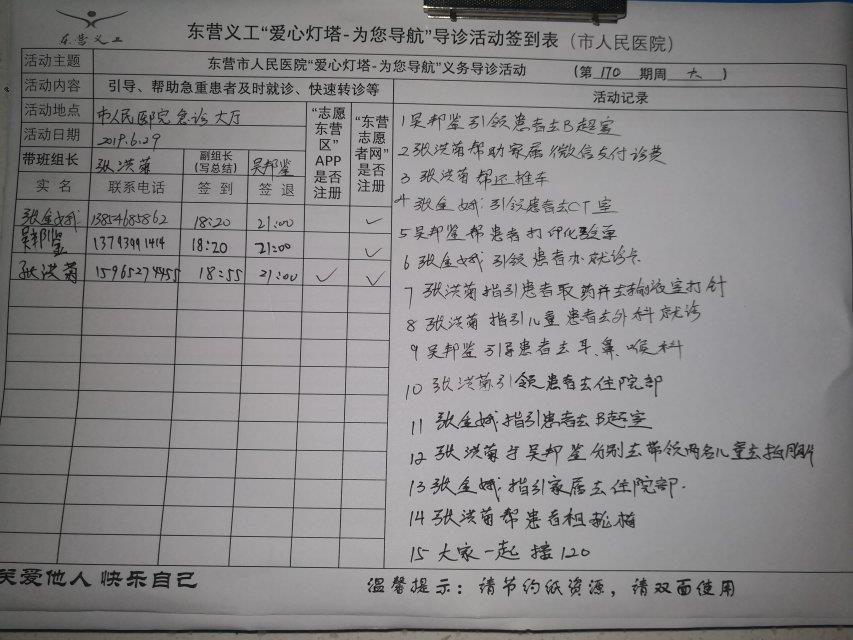 东营义工
东营义工“爱心灯塔-为您导航”导诊活动签到表（市人民医院）
活动主题 东营市人民医院“爱心灯塔-为您导航”义务导诊活动 （第 170 期周 六 ）
活动内容 引导、帮助急重患者及时就诊、快速转诊等
活动地点 市人民医院急诊大厅
活动日期 2019.6.29
带班组长 张洪菊 副组长（写总结） 吴邦鉴
“志愿东营区”APP是否注册
“东营志愿者网”是否注册
实名 联系电话 签到 签退
张金娥 13854685862 18:20 21:00 ✓
吴邦鉴 13793991414 18:20 21:00 ✓
张洪菊 15965274455 18:55 21:00 ✓ ✓
活动记录
1 吴邦鉴引领患者去B超室
2 张洪菊帮助家属微信支付诊费
3 张洪菊帮还推车
4 张金娥引领患者去CT室
5 吴邦鉴帮患者打印化验单
6 张金娥引领患者办就诊卡
7 张洪菊指引患者取药并去输液室打针
8 张洪菊指引儿童患者去外科就诊
9 吴邦鉴引导患者去耳、鼻、喉科
10 张洪菊引领患者去住院部
11 张金娥指引患者去B超室
12 张洪菊于吴邦鉴分别去带领两名儿童去拍胸片
13 张金娥指引家居去住院部.
14 张洪菊帮患者租轮椅
15 大家一起接120
关爱他人 快乐自己
温馨提示：请节约纸资源，请双面使用